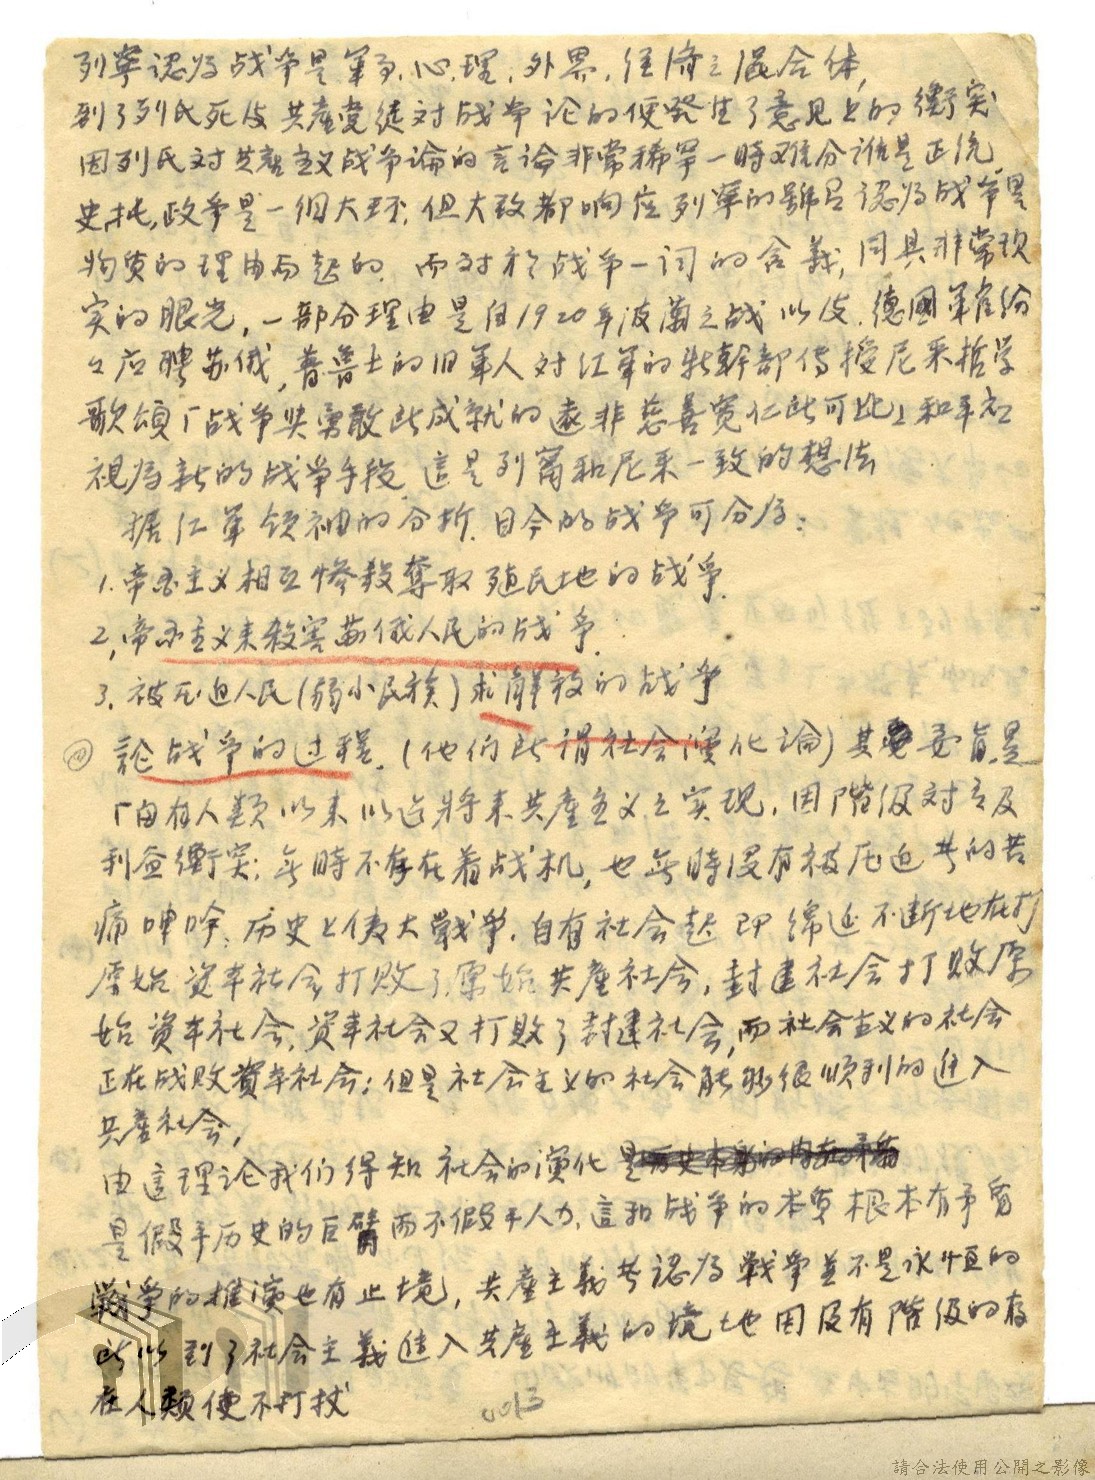 列寧認為战争是軍事.心.理.外界.经济之混合体,
到了列氏死后共產党徒对战争论的便發生了意見上的衝突
因列氏对共產主义战争論的言論非常稀罕一時难分誰是正统
史托,政争是一個大环.但大致都响应列寧的號召認為战爭是
物質的理由而起的.而对於战争一词的含義,同具非常现
实的眼光,一部分理由是自1920年波蘭之战以后.德國軍官纷
々应聘苏俄,普鲁士的旧軍人对红軍的新幹部傳授尼采哲学
歌頌「战争與勇敢所成就的遠非慈善寬仁所可比」和平被
視為新的战争手段.這是列甯和尼采一致的想法
據红軍领袖的分析.目今的战争可分為:
1.帝国主义相互惨殺奪取殖民地的战爭.
2,帝国主义来殺害苏俄人民的战爭.
3.被压迫人民(弱小民族)求解放的战争
四 論战争的过程.(他们所谓社会演化論)其要旨是
「自有人類以来以迄將来共產主义之实现,因階級对立及
利益衝突;無時不存在着战机,也無時没有被压迫者的苦
痛呻吟;历史上偉大戰爭.自有社会起即綿延不断地在打
原始资本社会打败了原始共產社会,封建社会打败原
始资本社会,资本社会又打败了封建社会,而社会主义的社会
正在战败資本社会;但是社会主义的社会能够很順利的進入
共產社会,
由這理论我们得知社会的演化
是假手历史的巨臂而不假手人力,這和战争的本質根本有矛盾
戰爭的推演也有止境,共產主義者認為戰爭並不是永恒的
所以到了社会主義進入共產主義的境地因没有階级的存
在人類便不打扙
0013
請合法使用公開之影像